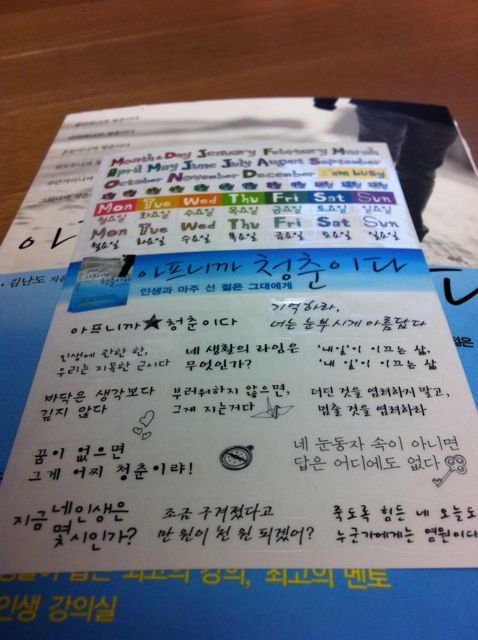 Month & Day January February March
April May June July August September
October November December I'm busy
Mon Tue Wed Thu Fri Sat Sun
월요일 화요일 수요일 목요일 금요일 토요일 일요일
Mon Tue Wed Thu Fri Sat Sun
월요일 화요일 수요일 목요일 금요일 토요일 일요일
아프니까 청춘이다
인생과 마주 선 젊은 그대에게
아프니까★청춘이다
기억하라,
너는 눈부시게 아름답다
인생에 관한 한,
우리는 지독한 근시다
네 생활의 라임은
무엇인가?
'내일'이 이끄는 삶,
'내 일'이 이끄는 삶
바닥은 생각보다
깊지 않다
부러워하지 않으면,
그게 지는거다
더딘 것을 염려하지 말고,
멈출 것을 염려하라
꿈이 없으면
그게 어찌 청춘이랴!
네 눈동자 속이 아니면
답은 어디에도 없다
지금 네 인생은
몇 시인가?
조금 구겨졌다고
만 원이 천 원 되겠어?
죽도록 힘든 네 오늘도
누군가에게는 염원이다
아
김난도
최고의 강의, 최고의 멘토
인생 강의실